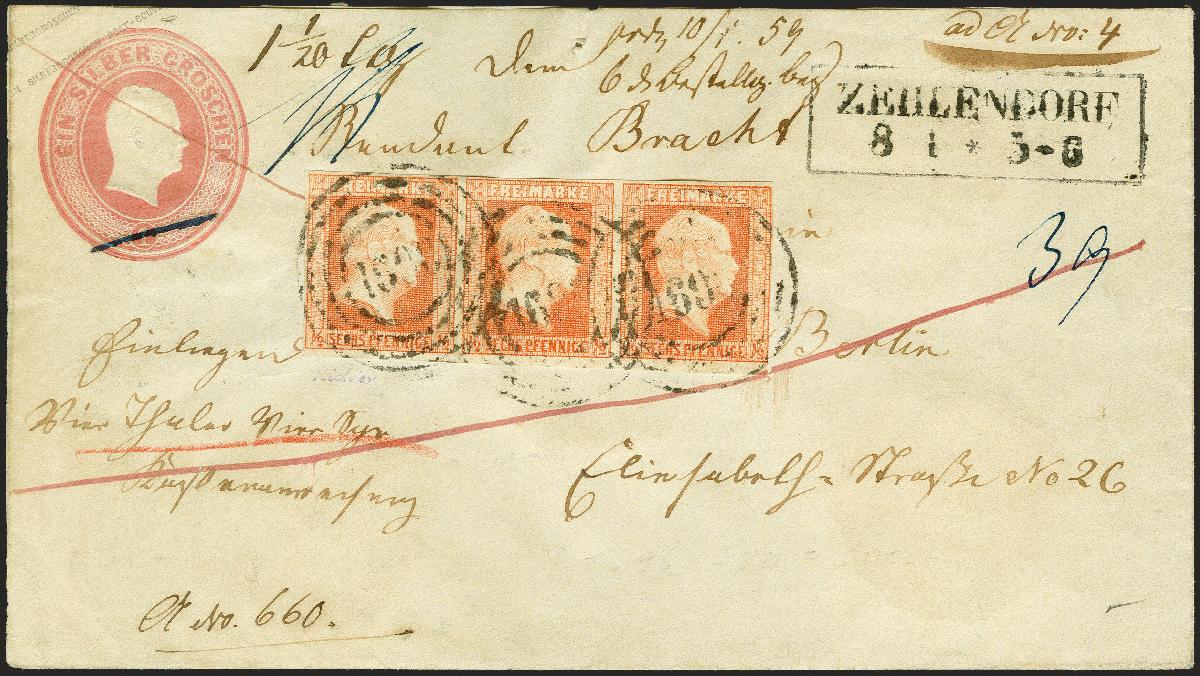 EIN SILBER GROSCHEN
1 1/20
Dem
10/1. 59
ad A No: 4
6 d Bestellg.
Rendant Bracht
ZEHLENDORF
8 1 * 5-6
FREIMARKE FREIMARKE
169
SECHS PFENNIGE SECHS PFENNIGE SECHS PFENNIGE
in
Berlin
3
Einliegend
Vier Thaler Vier Sgr
Kassenanweisung
Elisabeth-Straße No 26
A No. 660.